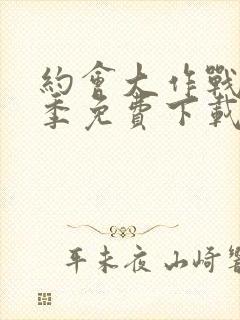 約會大作戰
季免費下載
平未夜 山崎響